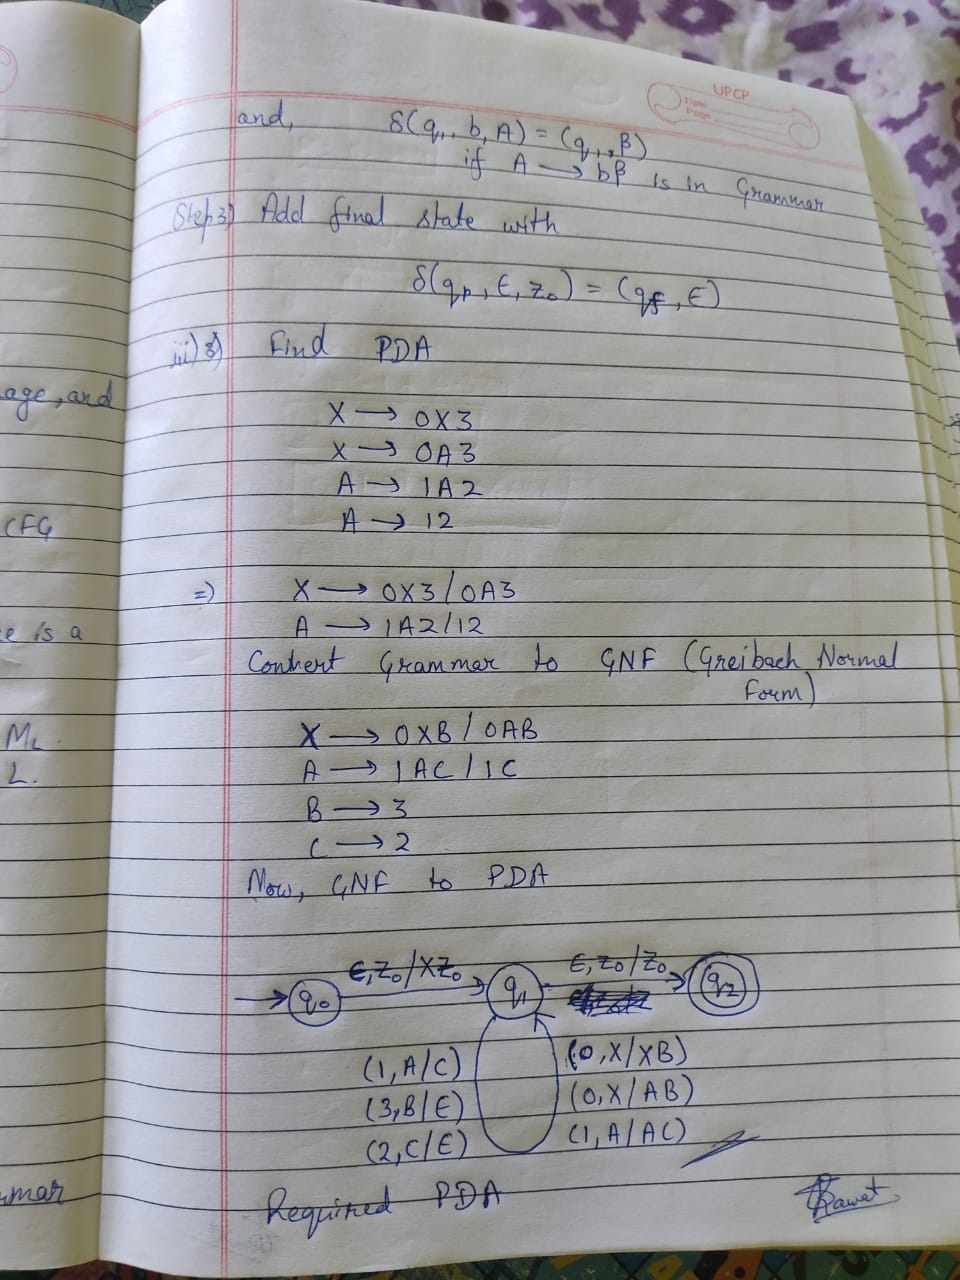 UPCP
Date
Page
and, δ(q₁, b, A) = (q₁, β)
if A → bβ is in Grammar
Step 3) Add final state with
δ(q₁, ε, z₀) = (qf, ε)
iii) 8) Find PDA
age, and
X → 0X3
X → 0A3
A → 1A2
A → 12
CFG
=) X → 0X3/0A3
A → 1A2/12
e is a
Convert Grammar to GNF (Greibach Normal
Form)
X → 0XB / 0AB
M_L.
A → 1AC / 1C
L.
B → 3
C → 2
Now, GNF to PDA
ε, Z₀/XZ₀
ε, z₀/z₀
q₀ q₁ q₂
(1, A/C) (0, X/XB)
(3, B/ε) (0, X/AB)
(2, C/ε) (1, A/AC)
mmar
Required PDA
Rawat